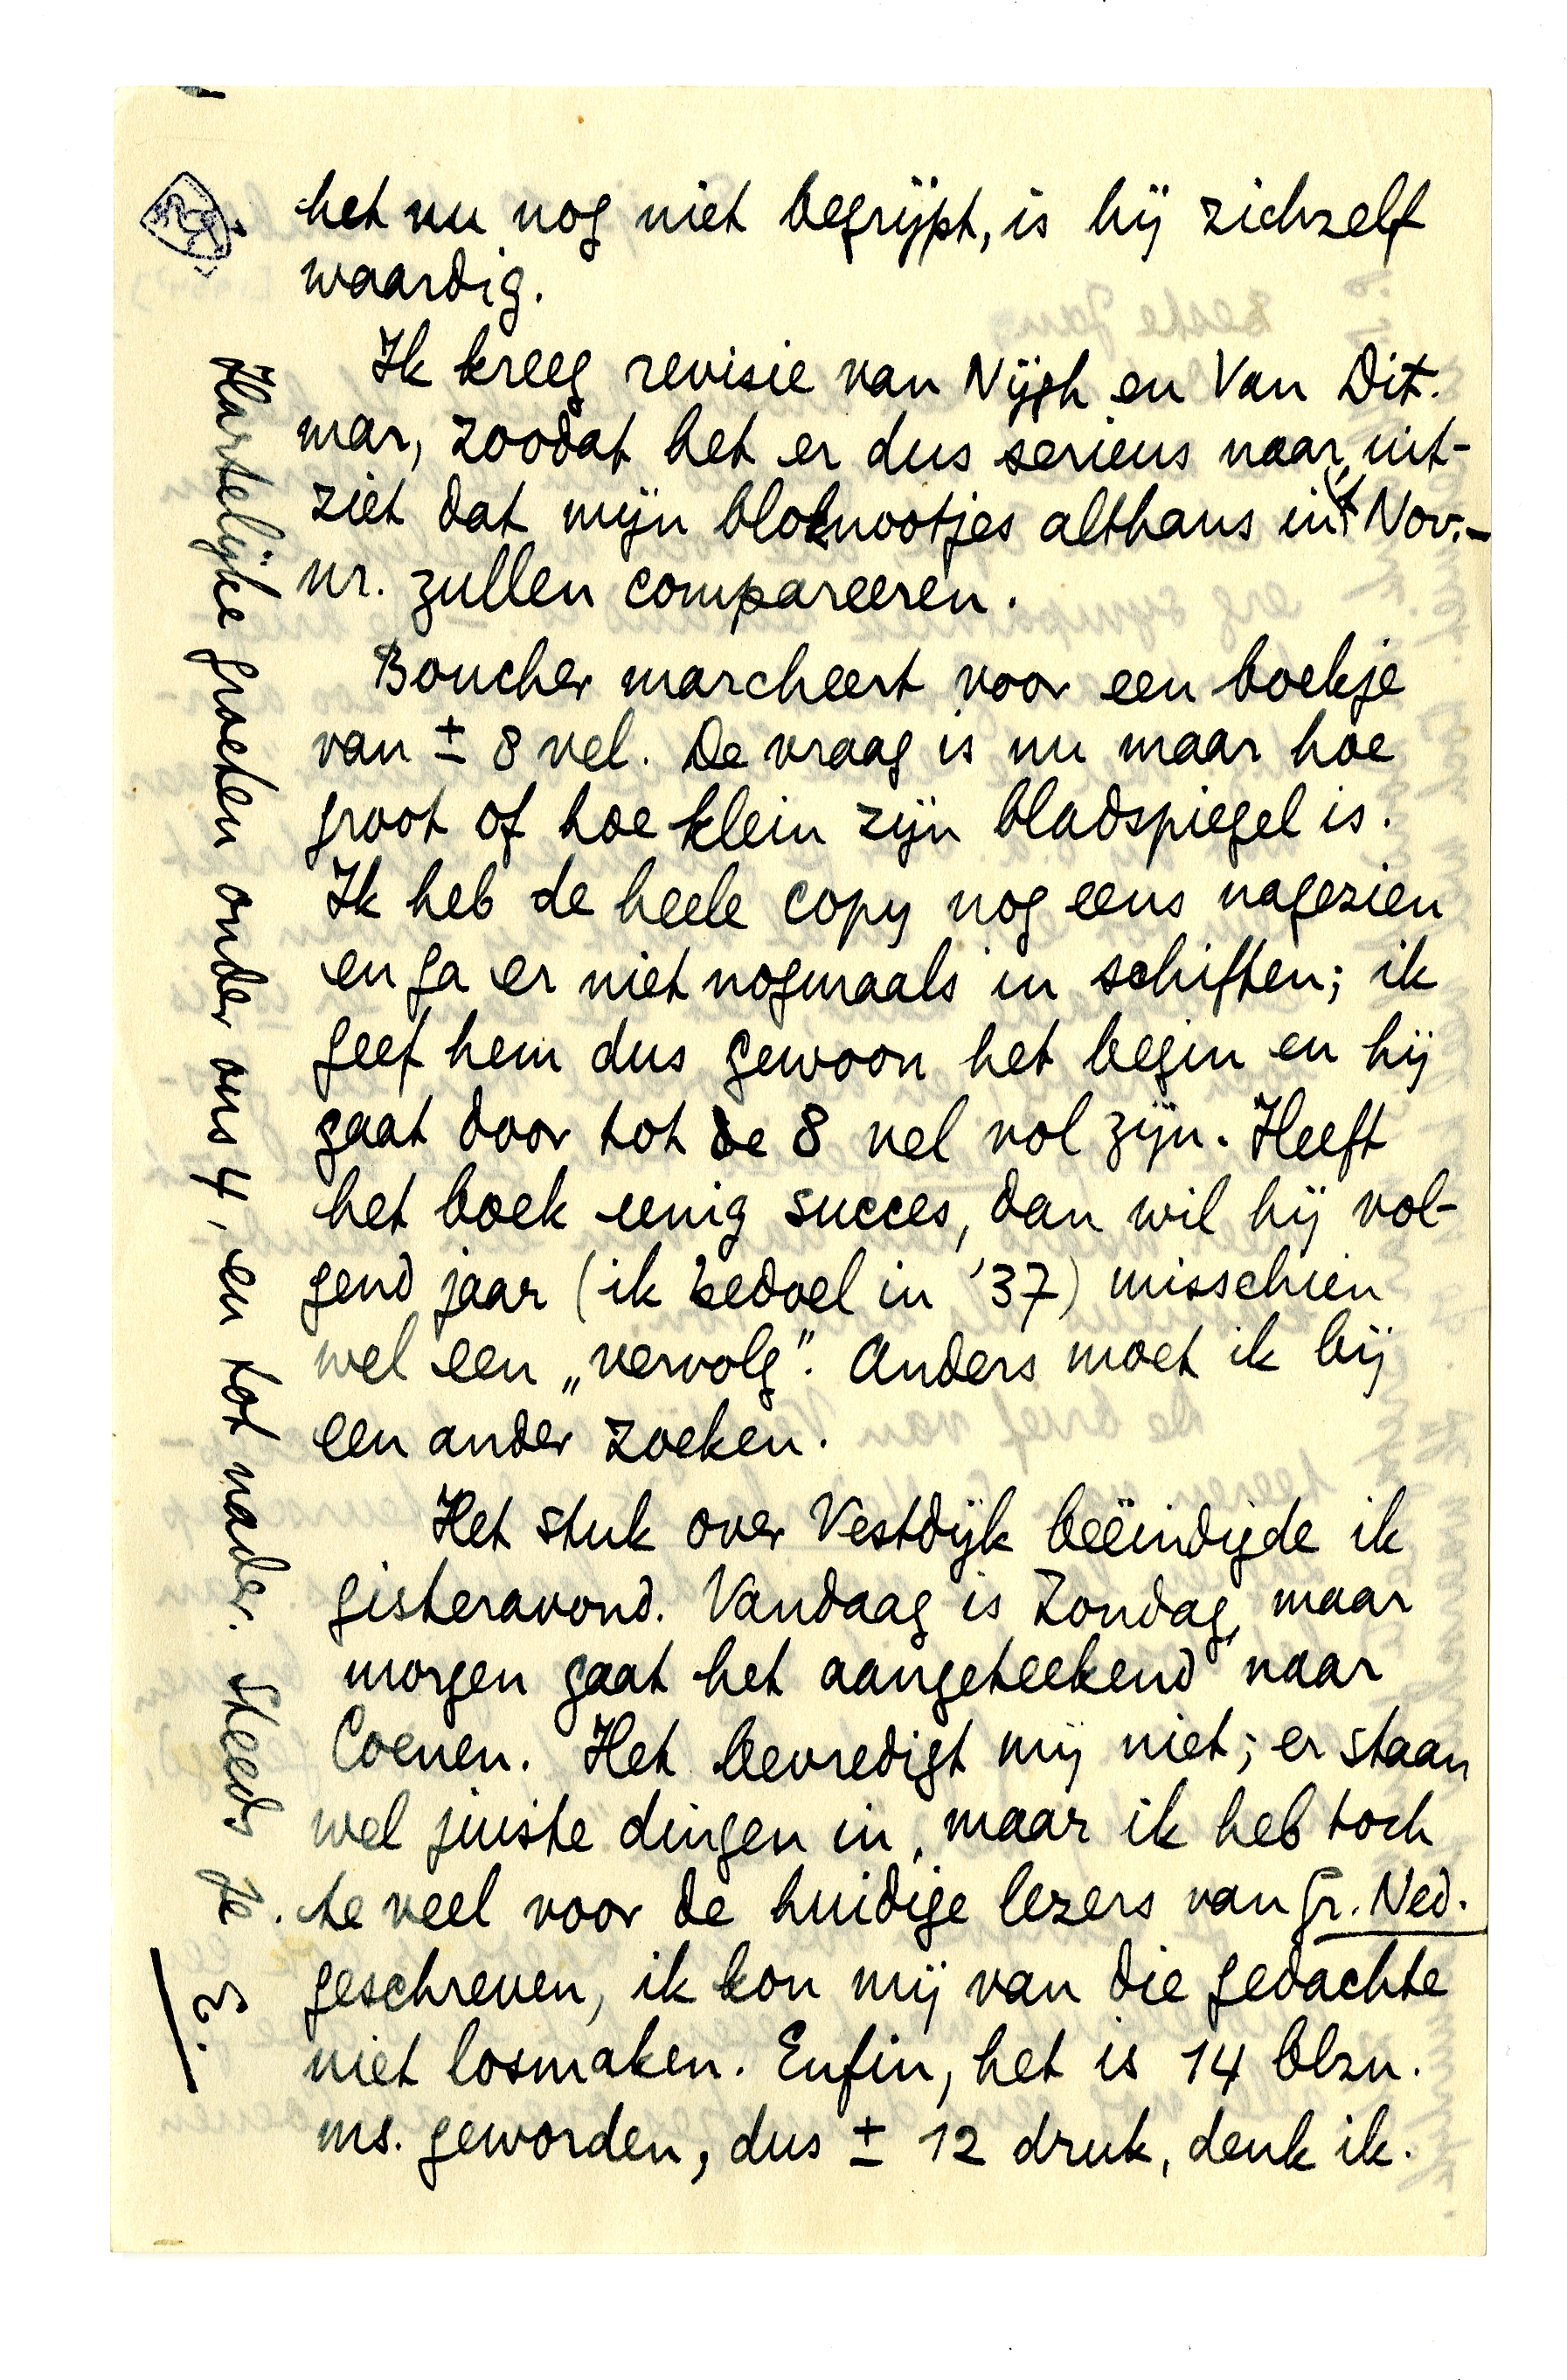 het nu nog niet begrijpt, is hij zichzelf
waardig.
Ik kreeg revisie van Nijgh en Van Dit-
mar, zoodat het er dus serieus naar uit-
ziet dat mijn bloknootjes althans in 't Nov.-
nr. zullen compareeren.
Boucher marcheert voor een boekje
van ± 8 vel. De vraag is nu maar hoe
groot of hoe klein zijn bladspiegel is.
Ik heb de heele copy nog eens nagezien
en ga er niet nogmaals in schiften; ik
geef hem dus gewoon het begin en hij
gaat door tot de 8 vel vol zijn. Heeft
het boek eenig succes, dan wil hij vol-
gend jaar (ik bedoel in '37) misschien
wel een „vervolg”. Anders moet ik bij
een ander zoeken.
Het stuk over Vestdijk beëindigde ik
gisteravond. Vandaag is Zondag, maar
morgen gaat het aangeteekend naar
Coenen. Het bevredigt mij niet; er staan
wel juiste dingen in, maar ik heb toch
te veel voor de huidige lezers van Gr. Ned.
geschreven, ik kon mij van die gedachte
niet losmaken. Enfin, het is 14 blzn.
ms. geworden, dus ± 12 druk, denk ik.
Hartelijke groeten onder ons 4, en tot nader. Steeds je
E.